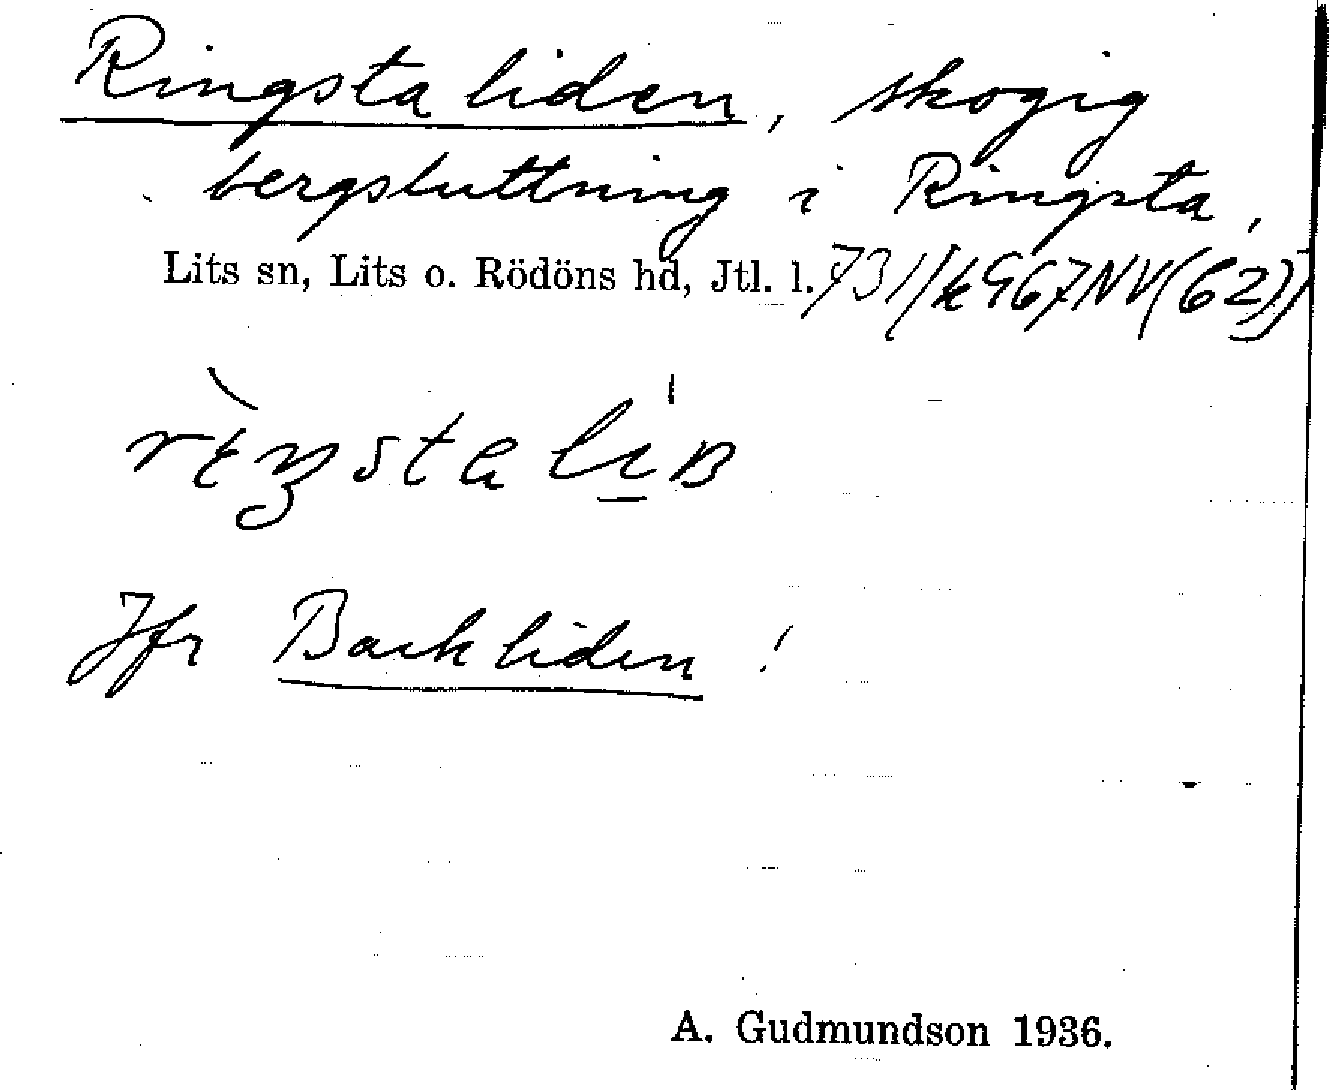 Ringstaliden, skogig
bergsluttning i Ringsta,
Lits sn, Lits o. Rödöns hd, Jtl. l.
Jfr Backliden!
A. Gudmundson 1936.